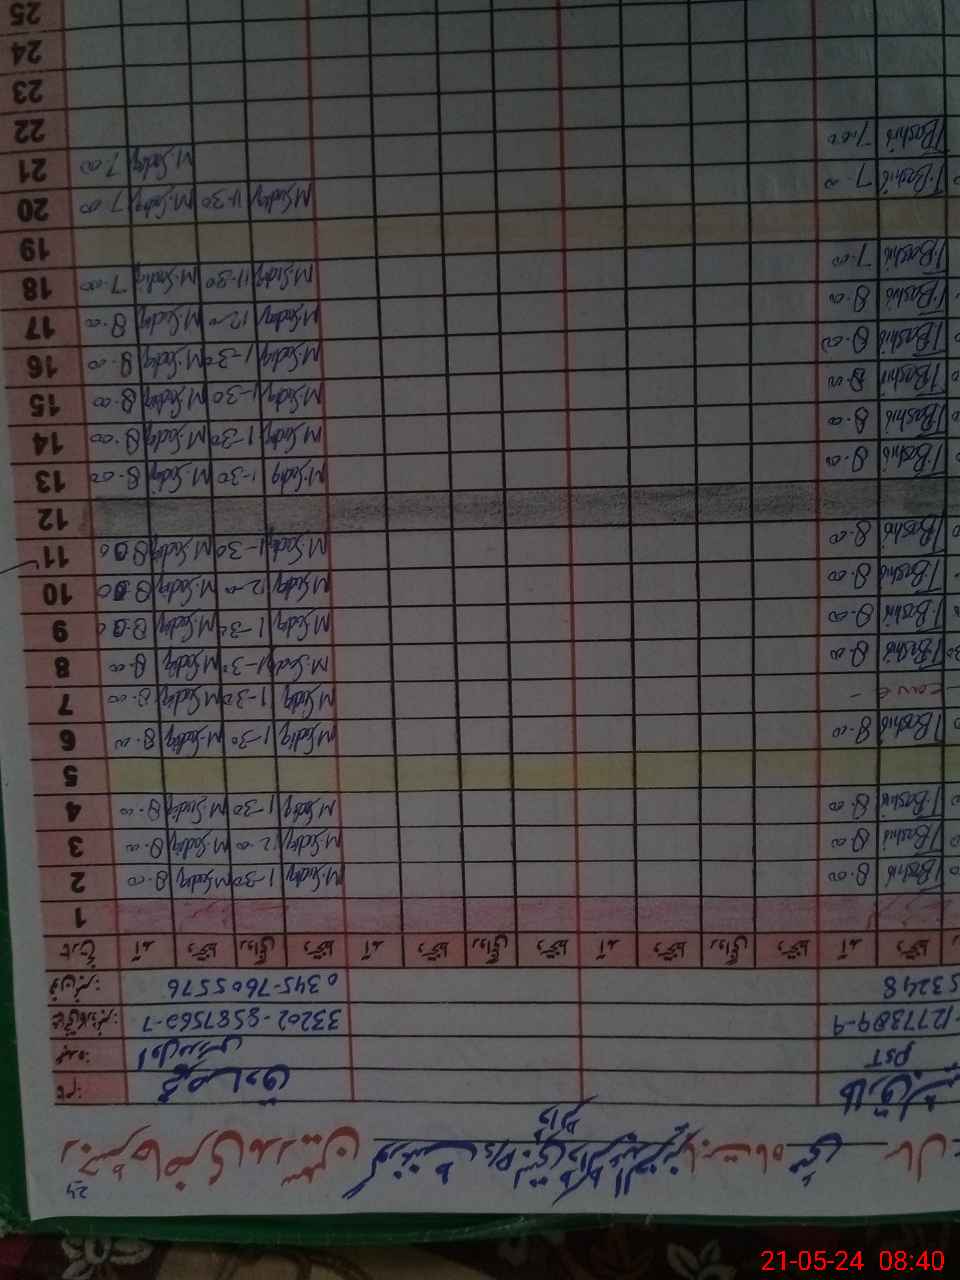 24
رجسٹر حاضری مدرسین گورنمنٹ بابت ماہ مئی سال
نام: محمد صادق طارق بشیر
عہدہ: PST
33202-8587560-7 1277389-9
فون نمبر: 0345-7605576 53248
تاریخ آمد دستخط روانگی دستخط آمد دستخط روانگی دستخط آمد دستخط روانگی دستخط آمد دستخط
1
2 8-00 M.Sadiq 1-30 M.Sadiq 8-00 T.Bashir
3 8-00 M.Sadiq 12-00 M.Sadiq 8-00 T.Bashir
4 8-00 M.Sadiq 1-30 M.Sadiq 8-00 T.Bashir
5
6 8-00 M.Sadiq 1-30 M.Sadiq 8-00 T.Bashir
7 8-00 M.Sadiq 1-30 M.Sadiq
8 8-00 M.Sadiq 1-30 M.Sadiq 8-00 T.Bashir
9 8-00 M.Sadiq 1-30 M.Sadiq 8-00 T.Bashir
10 8-00 M.Sadiq 12-00 M.Sadiq 8-00 T.Bashir
11 8-00 M.Sadiq 1-30 M.Sadiq 8-00 T.Bashir
12
13 8-00 M.Sadiq 1-30 M.Sadiq 8-00 T.Bashir
14 8-00 M.Sadiq 1-30 M.Sadiq 8-00 T.Bashir
15 8-00 M.Sadiq 1-30 M.Sadiq 8-00 T.Bashir
16 8-00 M.Sadiq 1-30 M.Sadiq 8-00 T.Bashir
17 8-00 M.Sadiq 12-00 M.Sadiq 8-00 T.Bashir
18 7-00 M.Sadiq 11-30 M.Sadiq 7-00 T.Bashir
19
20 7-00 M.Sadiq 11-30 M.Sadiq 7-00 T.Bashir
21 7-00 M.Sadiq 7-00 T.Bashir
22
23
24
25
21-05-24 08:40